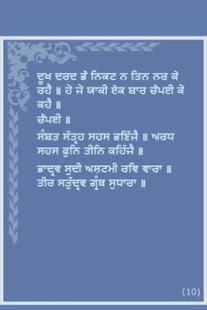 ਦੂਖ ਦਰਦ ਭੈ ਨਿਕਟ ਨ ਤਿਨ ਨਰ ਕੇ
ਰਹੈ ॥ ਹੋ ਜੋ ਯਾਕੀ ਏਕ ਬਾਰ ਚੌਪਈ ਕੋ
ਕਹੈ ॥
ਚੌਪਈ ॥
ਸੰਬਤ ਸੱਤ੍ਰਹ ਸਹਸ ਭਣਿੱਜੈ ॥ ਅਰਧ
ਸਹਸ ਫੁਨਿ ਤੀਨਿ ਕਹਿੱਜੈ ॥
ਭਾਦ੍ਰਵ ਸੁਦੀ ਅਸ਼ਟਮੀ ਰਵਿ ਵਾਰਾ ॥
ਤੀਰ ਸਤੁੱਦ੍ਰਵ ਗ੍ਰੰਥ ਸੁਧਾਰਾ ॥
(10)